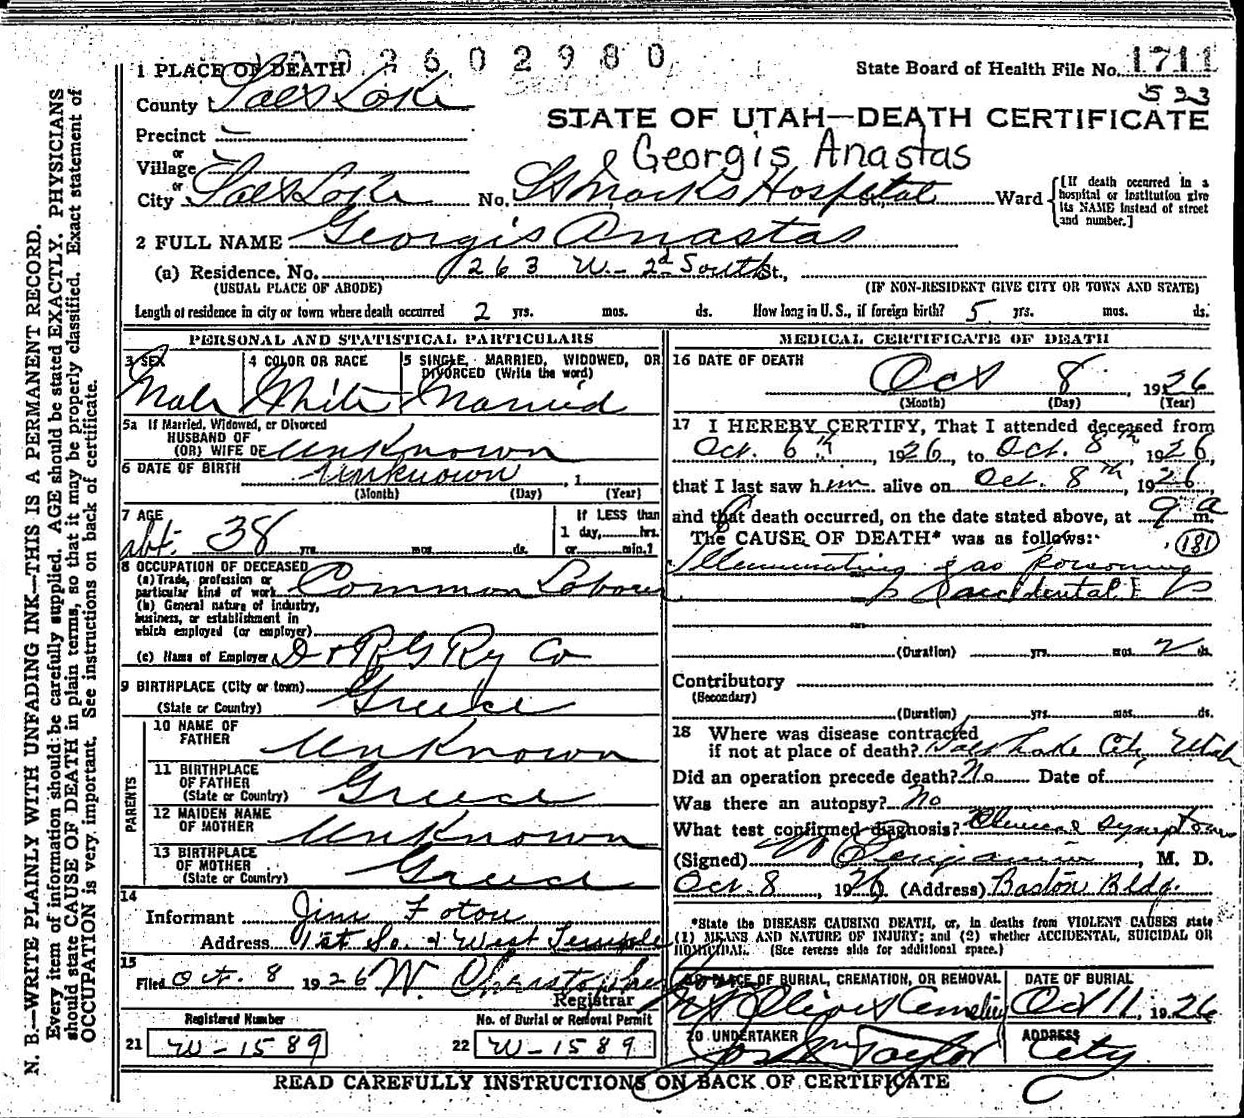 1002602980
1 PLACE OF DEATH
State Board of Health File No. 1711
523
County Salt Lake
STATE OF UTAH—DEATH CERTIFICATE
Precinct
or
Georgis Anastas
Village
or
City Salt Lake No. St Marks Hospital St., Ward
[If death occurred in a hospital or institution give its NAME instead of street and number.]
2 FULL NAME Georgis Anastas
(a) Residence. No. 263 W - 2d South St.,
(USUAL PLACE OF ABODE) (IF NON-RESIDENT GIVE CITY OR TOWN AND STATE)
Length of residence in city or town where death occurred 2 yrs. mos. ds. How long in U. S., if foreign birth? 5 yrs. mos. ds.
PERSONAL AND STATISTICAL PARTICULARS
3 SEX 4 COLOR OR RACE 5 SINGLE, MARRIED, WIDOWED, OR
DIVORCED (Write the word)
Male White Married
5a If Married, Widowed, or Divorced
HUSBAND OF
(OR) WIFE OF Unknown
6 DATE OF BIRTH Unknown, 1
(Month) (Day) (Year)
7 AGE If LESS than
1 day, hrs.
abt. 38 yrs. mos. ds. or min.?
8 OCCUPATION OF DECEASED
(a) Trade, profession or
particular kind of work Common Laborer
(b) General nature of industry,
business, or establishment in
which employed (or employer)
(c) Name of Employer D & R G Ry Co
9 BIRTHPLACE (City or town)
(State or Country) Greece
PARENTS
10 NAME OF
FATHER Unknown
11 BIRTHPLACE
OF FATHER
(State or Country) Greece
12 MAIDEN NAME
OF MOTHER Unknown
13 BIRTHPLACE
OF MOTHER
(State or Country) Greece
14
Informant Jim Fotou
Address 1st So. & West Temple
15
Filed Oct. 8 1926 W. Christopherson
Registrar
Registered Number No. of Burial or Removal Permit
21 W-1589 22 W-1589
MEDICAL CERTIFICATE OF DEATH
16 DATE OF DEATH
Oct 8, 1926
(Month) (Day) (Year)
17 I HEREBY CERTIFY, That I attended deceased from
Oct. 6th, 1926, to Oct. 8th, 1926,
that I last saw him alive on Oct. 8th, 1926,
and that death occurred, on the date stated above, at 9 a m.
The CAUSE OF DEATH* was as follows:
181
Illuminating gas poisoning
Accidental
(Duration) yrs. mos. 2 ds.
Contributory
(Secondary)
(Duration) yrs. mos. ds.
18 Where was disease contracted
if not at place of death? Salt Lake City Utah
Did an operation precede death? No Date of
Was there an autopsy? No
What test confirmed diagnosis? Clinical symptoms
(Signed) Benjamin, M. D.
Oct. 8, 1926 (Address) Boston Bldg.
*State the DISEASE CAUSING DEATH, or, in deaths from VIOLENT CAUSES state
(1) MEANS AND NATURE OF INJURY; and (2) whether ACCIDENTAL, SUICIDAL OR
HOMICIDAL. (See reverse side for additional space.)
19 PLACE OF BURIAL, CREMATION, OR REMOVAL DATE OF BURIAL
Mt Olivet Cemetery Oct 11, 1926
20 UNDERTAKER ADDRESS
Jos. Wm Taylor City
READ CAREFULLY INSTRUCTIONS ON BACK OF CERTIFICATE
N. B.—WRITE PLAINLY WITH UNFADING INK—THIS IS A PERMANENT RECORD.
Every item of information should be carefully supplied. AGE should be stated EXACTLY. PHYSICIANS
should state CAUSE OF DEATH in plain terms, so that it may be properly classified. Exact statement of
OCCUPATION is very important. See instructions on back of certificate.